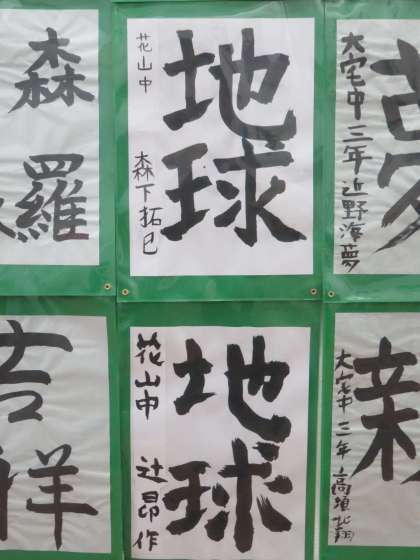 森羅
地球
花山中 森下拓巳
夢
大宅中 二年 近野海夢
吉祥
地球
花山中 辻昂作
新
大宅中 三年